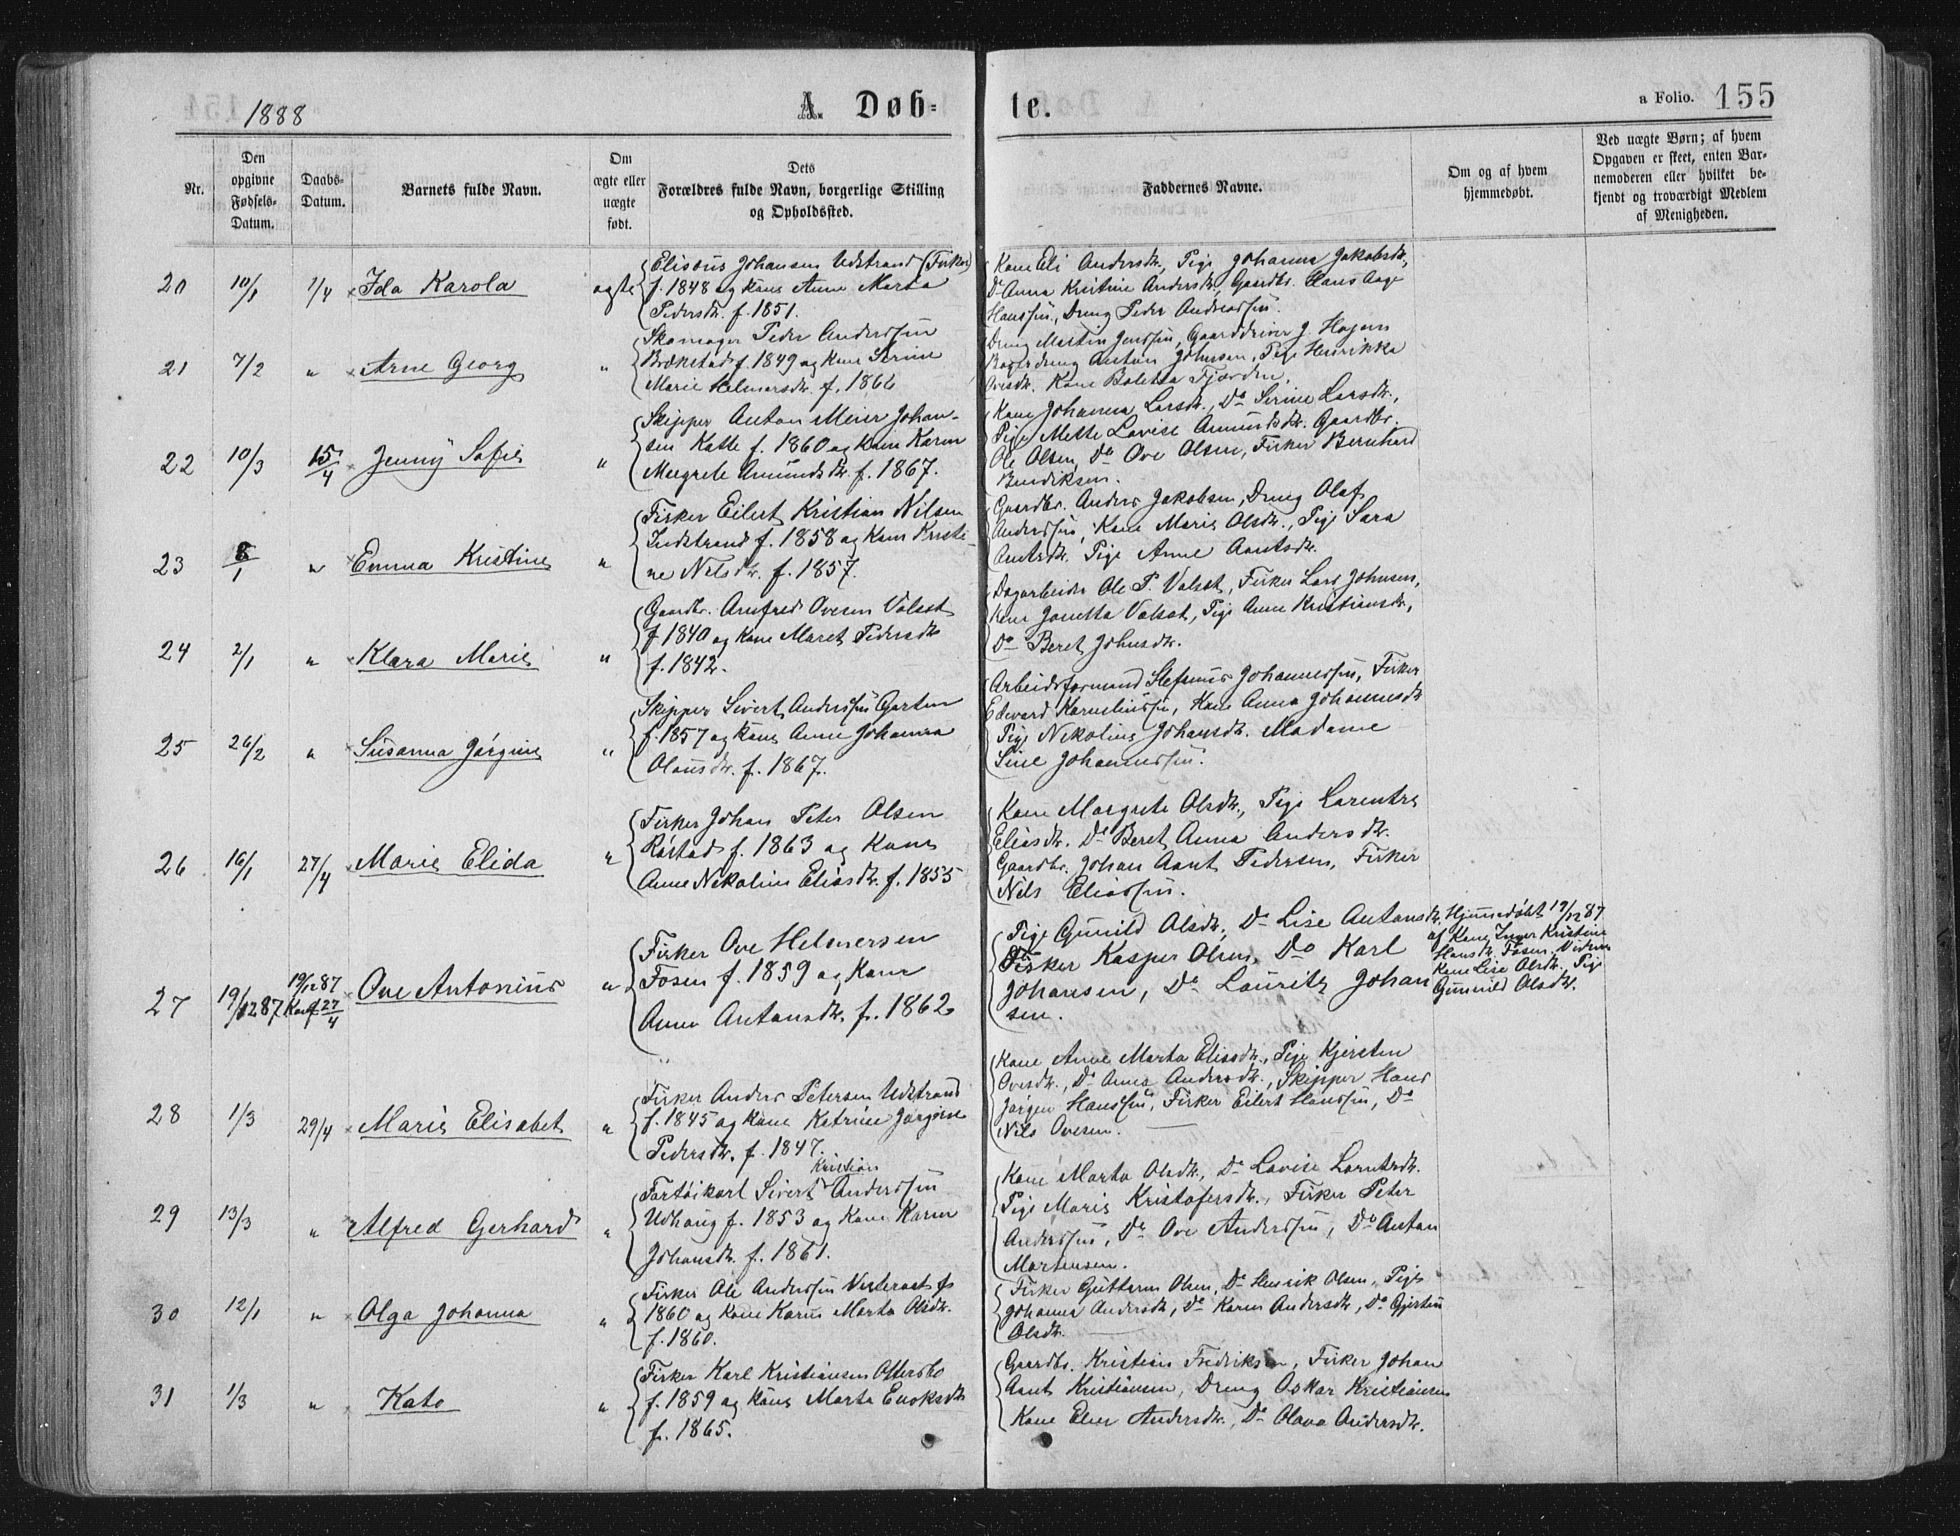 1888
A Døb=
te.
a Folio. 155
Nr.
Den opgivne Fødsels-Datum.
Daabs-Datum.
Barnets fulde Navn.
Om ægte eller uægte født.
Dets Forældres fulde Navn, borgerlige Stilling og Opholdssted.
Faddernes Navne.
Om og af hvem hjemmedøbt.
Ved uægte Børn; af hvem Opgaven er skeet, enten Barnemoderen eller hvilket bekjendt og troværdigt Medlem af Menigheden.
20 10/1 1/4 Ida Karola ægte
Eliseus Johansen Udstrand (Fisker)
f. 1848 og Kone Anne Marta
Pedersdtr. f. 1851.
Kone Eli Andersdtr., Pige Johanna Jakobsdtr.,
Do Anna Kristine Andersdtr., Gaardbr. Hans Aage
Hanssen, Dreng Peder Andreassen.
21 7/2 " Arne Georg "
Skomager Peder Anderssen
Brækstad f. 1849 og Kone Serine
Marie Helmersdtr. f. 1866
Dreng Martin Jenssen, Gaarddriver J. Hagen
Bagerdreng Anton Johnsen, Pige Henrikka
Ovesdtr. Kone Boletta Fjorden.
22 10/3 15/4 Jenny Sofie "
Skipper Anton Meier Johan-
sen Katte f. 1860 og Kone Karen
Margrete Amundsdtr. f. 1867.
Kone Johanna Larsdtr., Do Serine Larsdtr.,
Pige Mette Lovise Amundsdtr. Gaardbr.
Ole Olsen, Do Ove Olsen, Fisker Bernhard
Bendiksen.
23 8/1 " Emma Kristine "
Fisker Eilert Kristian Nilsen
Indstrand f. 1858 og Kone Kristi-
ne Nilsdtr. f. 1857.
Gaardbr. Anders Jakobsen, Dreng Olaf
Anderssen, Kone Marie Olsdtr., Pige Sara
Arntsdtr. Pige Anne Arntsdtr.
24 2/1 " Klara Marie "
Gaardbr. Arnfred Ovesen Valset
f. 1840 og Kone Maret Pedersdtr
f. 1842.
Dagarbeider Ole P. Valset, Fisker Lars Johnsen,
Kone Jonetta Valset, Pige Anne Kristiansdtr.,
Do Beret Johnsdtr.
25 26/2 " Susanna Jørgine "
Skipper Sivert Anderssen Garten
f. 1857 og Kone Anne Johanna
Olausdtr. f. 1867.
Arbeidsformand Stefanus Johannessen, Fisker
Edvard Korneliussen, Kone Anna Johannesdtr
Pige Nikoline Johansdtr. Madame
Sine Johannessen.
26 16/1 27/4 Marie Elida "
Fisker Johan Peter Olsen
Røstad f. 1863 og Kone
Anne Nikoline Eliasdtr. f. 1855
Kone Margrete Olsdtr., Pige Larentse
Eliasdtr. Do Beret Anna Andersdtr.
Gaardbr. Johan Arnt Pedersen, Fisker
Nils Eliassen.
27 19/12 87 19/12 87 Konf. 27/4 Ove Antonius "
Fisker Ove Helmersen
Fosen f. 1859 og Kone
Anne Antonsdtr. f. 1862
Pige Gunild Olsdtr., Do Lise Antonsdtr.
Fisker Kasper Olsen, Do Karl
Johansen, Do Lauritz Johan
sen.
Hjemmedøbt 19/12 87
af Kone Inger Kristine
Hansdtr. Fosen. Vidner
Kone Lise Olsdtr. Pige
Gunnild Olsdtr.
28 1/3 29/4 Marie Elisabet "
Fisker Anders Petersen Udstrand
f. 1845 og Kone Katrine Jørgine
Pedersdtr. f. 1847.
Kone Anne Marta Eliasdtr., Pige Kjersten
Ovesdtr., Do Anna Andersdtr., Skipper Hans
Jørgen Hanssen, Fisker Eilert Hanssen, Do
Nils Ovesen.
29 13/3 " Alfred Gerhard "
Kristian
Fartøikarl Sivert Anderssen
Udhaug f. 1853 og Kone Karen
Johansdtr. f. 1861.
Kone Marta Olsdtr., Do Lovise Larntsdtr.
Pige Marie Kristofersdtr., Fisker Peter
Anderssen, Do Ove Anderssen, Do Anton
Martensen.
30 12/1 " Olga Johanna "
Fisker Ole Anderssen f.
1860 og Kone Karen Marta Olsdtr.
f. 1860.
Fisker Guttorm Olsen, Do Henrik Olsen, Pige
Johanna Andersdtr, Do Karen Andersdtr, Do Gjertine
Olsdtr.
31 1/3 " Kato "
Fisker Karl Kristiansen Ottersbo
f. 1859 og Kone Marta Enoksdtr
f. 1865.
Gaardbr. Kristian Fredriksen, Fisker Johan
Arnt Kristiansen, Dreng Oskar Kristiansen
Kone Elen Andersdtr., Do Olava Andersdtr.